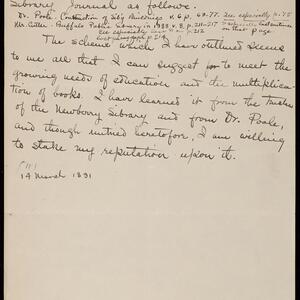 Library Journal as follows.
Dr. Poole. Construction of Lib'y Buildings v. 6 p. 69-77. See especially p. 75
Mr. Cutter. Buffalo Public Library in 1983 v. 8, p. 211-217 last sentence on that page
See especially p. 212
last paragraph p. 216
The scheme which I have outlined seems
to me all that I can suggest to meet the
growing needs of education and the multiplica-
tion of books. I have learned it from the trustees
of the Newberry Library and from Dr. Poole,
and though untried heretofore, I am willing
to stake my reputation upon it.
14 March 1891